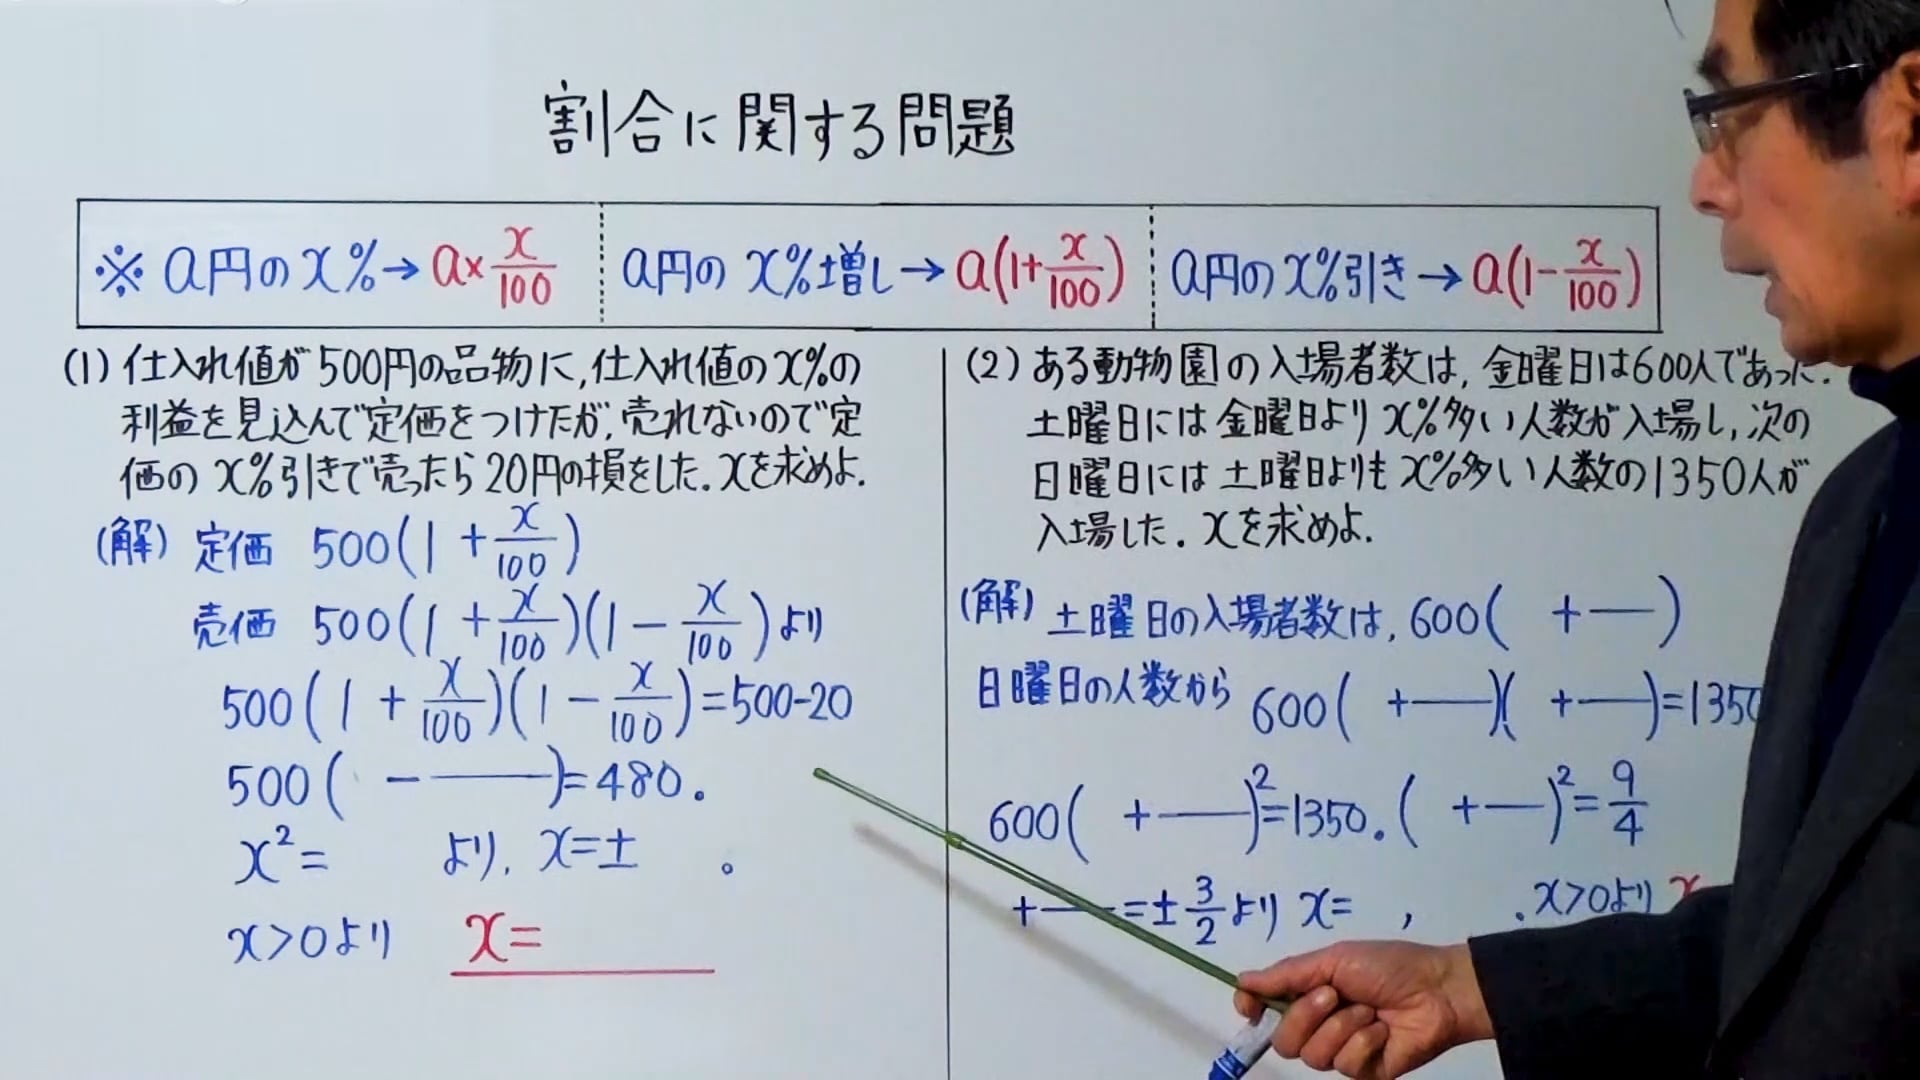 割合に関する問題
※ a円のx%→a×x/100
a円のx%増し→a(1+x/100)
a円のx%引き→a(1-x/100)
(1) 仕入れ値が500円の品物に,仕入れ値のx%の
利益を見込んで定価をつけたが,売れないので定
価のx%引きで売ったら20円の損をした.xを求めよ.
(解) 定価 500(1+x/100)
売価 500(1+x/100)(1-x/100)より
500(1+x/100)(1-x/100)=500-20
500( - ― )=480.
x²= より, x=± 。
x>0より x=
(2) ある動物園の入場者数は,金曜日は600人であった.
土曜日には金曜日よりx%多い人数が入場し,次の
日曜日には土曜日よりもx%多い人数の1350人が
入場した.xを求めよ.
(解) 土曜日の入場者数は, 600( +―)
日曜日の人数から 600( +―)( +―)=1350
600( +―)²=1350. ( +―)²=9/4
+―=±3/2より x= , .x>0より x